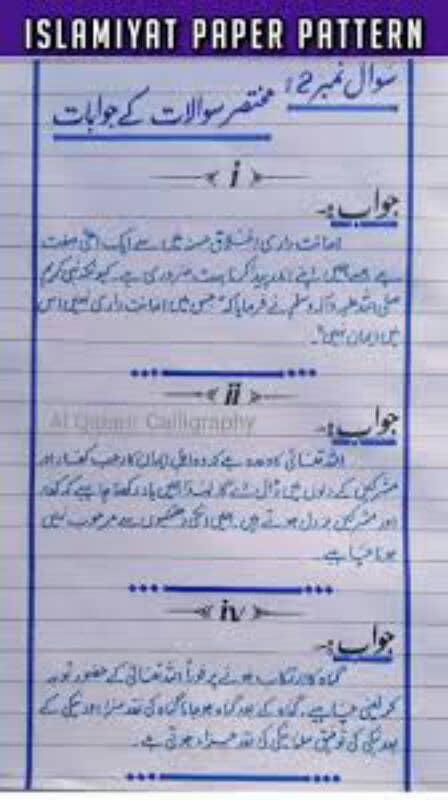 ISLAMIYAT PAPER PATTERN
سوال نمبر 2: مختصر سوالات کے جوابات
i
جواب:-
امانت داری اخلاق حسنہ میں سے ایک اعلیٰ صفت
ہے جسے ہمیں اپنے اندر پیدا کرنا بہت ضروری ہے۔ کیونکہ نبی کریم
صلی اللہ علیہ وآلہ وسلم نے فرمایا کہ "جس میں امانت داری نہیں اس
میں ایمان نہیں"۔
ii
Al Qalam Calligraphy
جواب:-
اللہ تعالیٰ کا وعدہ ہے کہ وہ اہل ایمان کا رعب کفار اور
مشرکین کے دلوں میں ڈال دے گا لہذا ہمیں یاد رکھنا چاہیے کہ کفار
اور مشرکین بزدل ہوتے ہیں ہمیں انکی دھمکیوں سے مرعوب نہیں
ہونا چاہیے۔
iv
جواب:-
گناہ کا ارتکاب ہونے پر فوراً اللہ تعالیٰ کے حضور توبہ
کر لینی چاہیے۔ گناہ کے بعد گناہ ہو جانا گناہ کی نقد سزا اور نیکی کے
بعد نیکی کی توفیق ملنا نیکی کی نقد جزاء ہوتی ہے۔